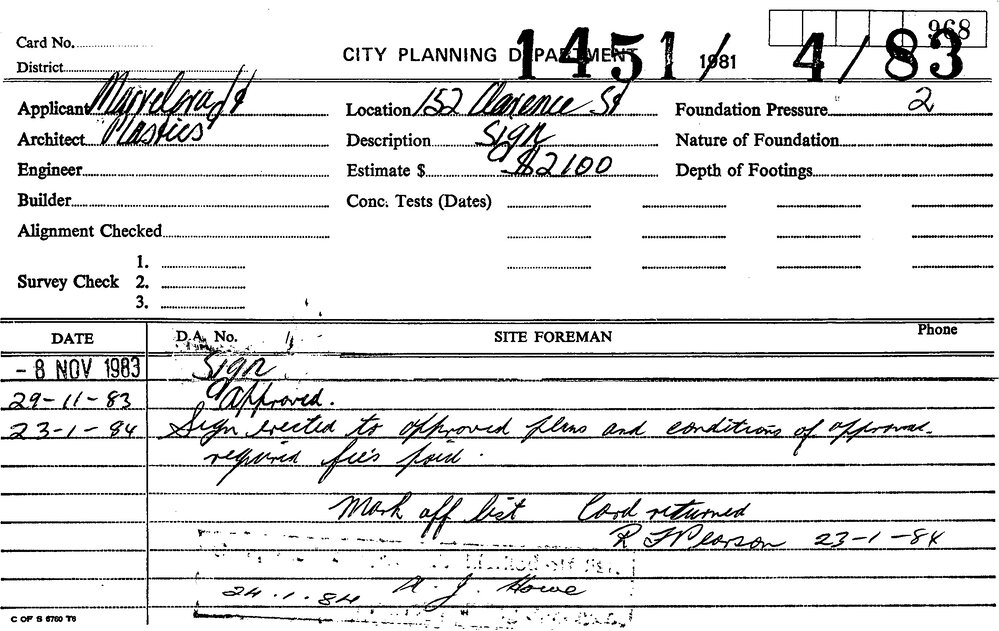 968
Card No.
CITY PLANNING DEPARTMENT 1451/1981 4/83
District
Applicant Marvelcraft Location 152 Clarence St Foundation Pressure 2
Architect Plastics Description Sign Nature of Foundation
Engineer Estimate $ $2100 Depth of Footings
Builder Conc. Tests (Dates)
Alignment Checked
1.
Survey Check 2.
3.
DATE D.A. No. SITE FOREMAN Phone
- 8 NOV 1983 Sign
29-11-83 Approved.
23-1-84 Sign erected to approved plans and conditions of approval.
required fees paid.
Mark off list Card returned
R J Pearson 23-1-84
Marked off
24.1.84 A. J. Howe
C OF S 6760 T6